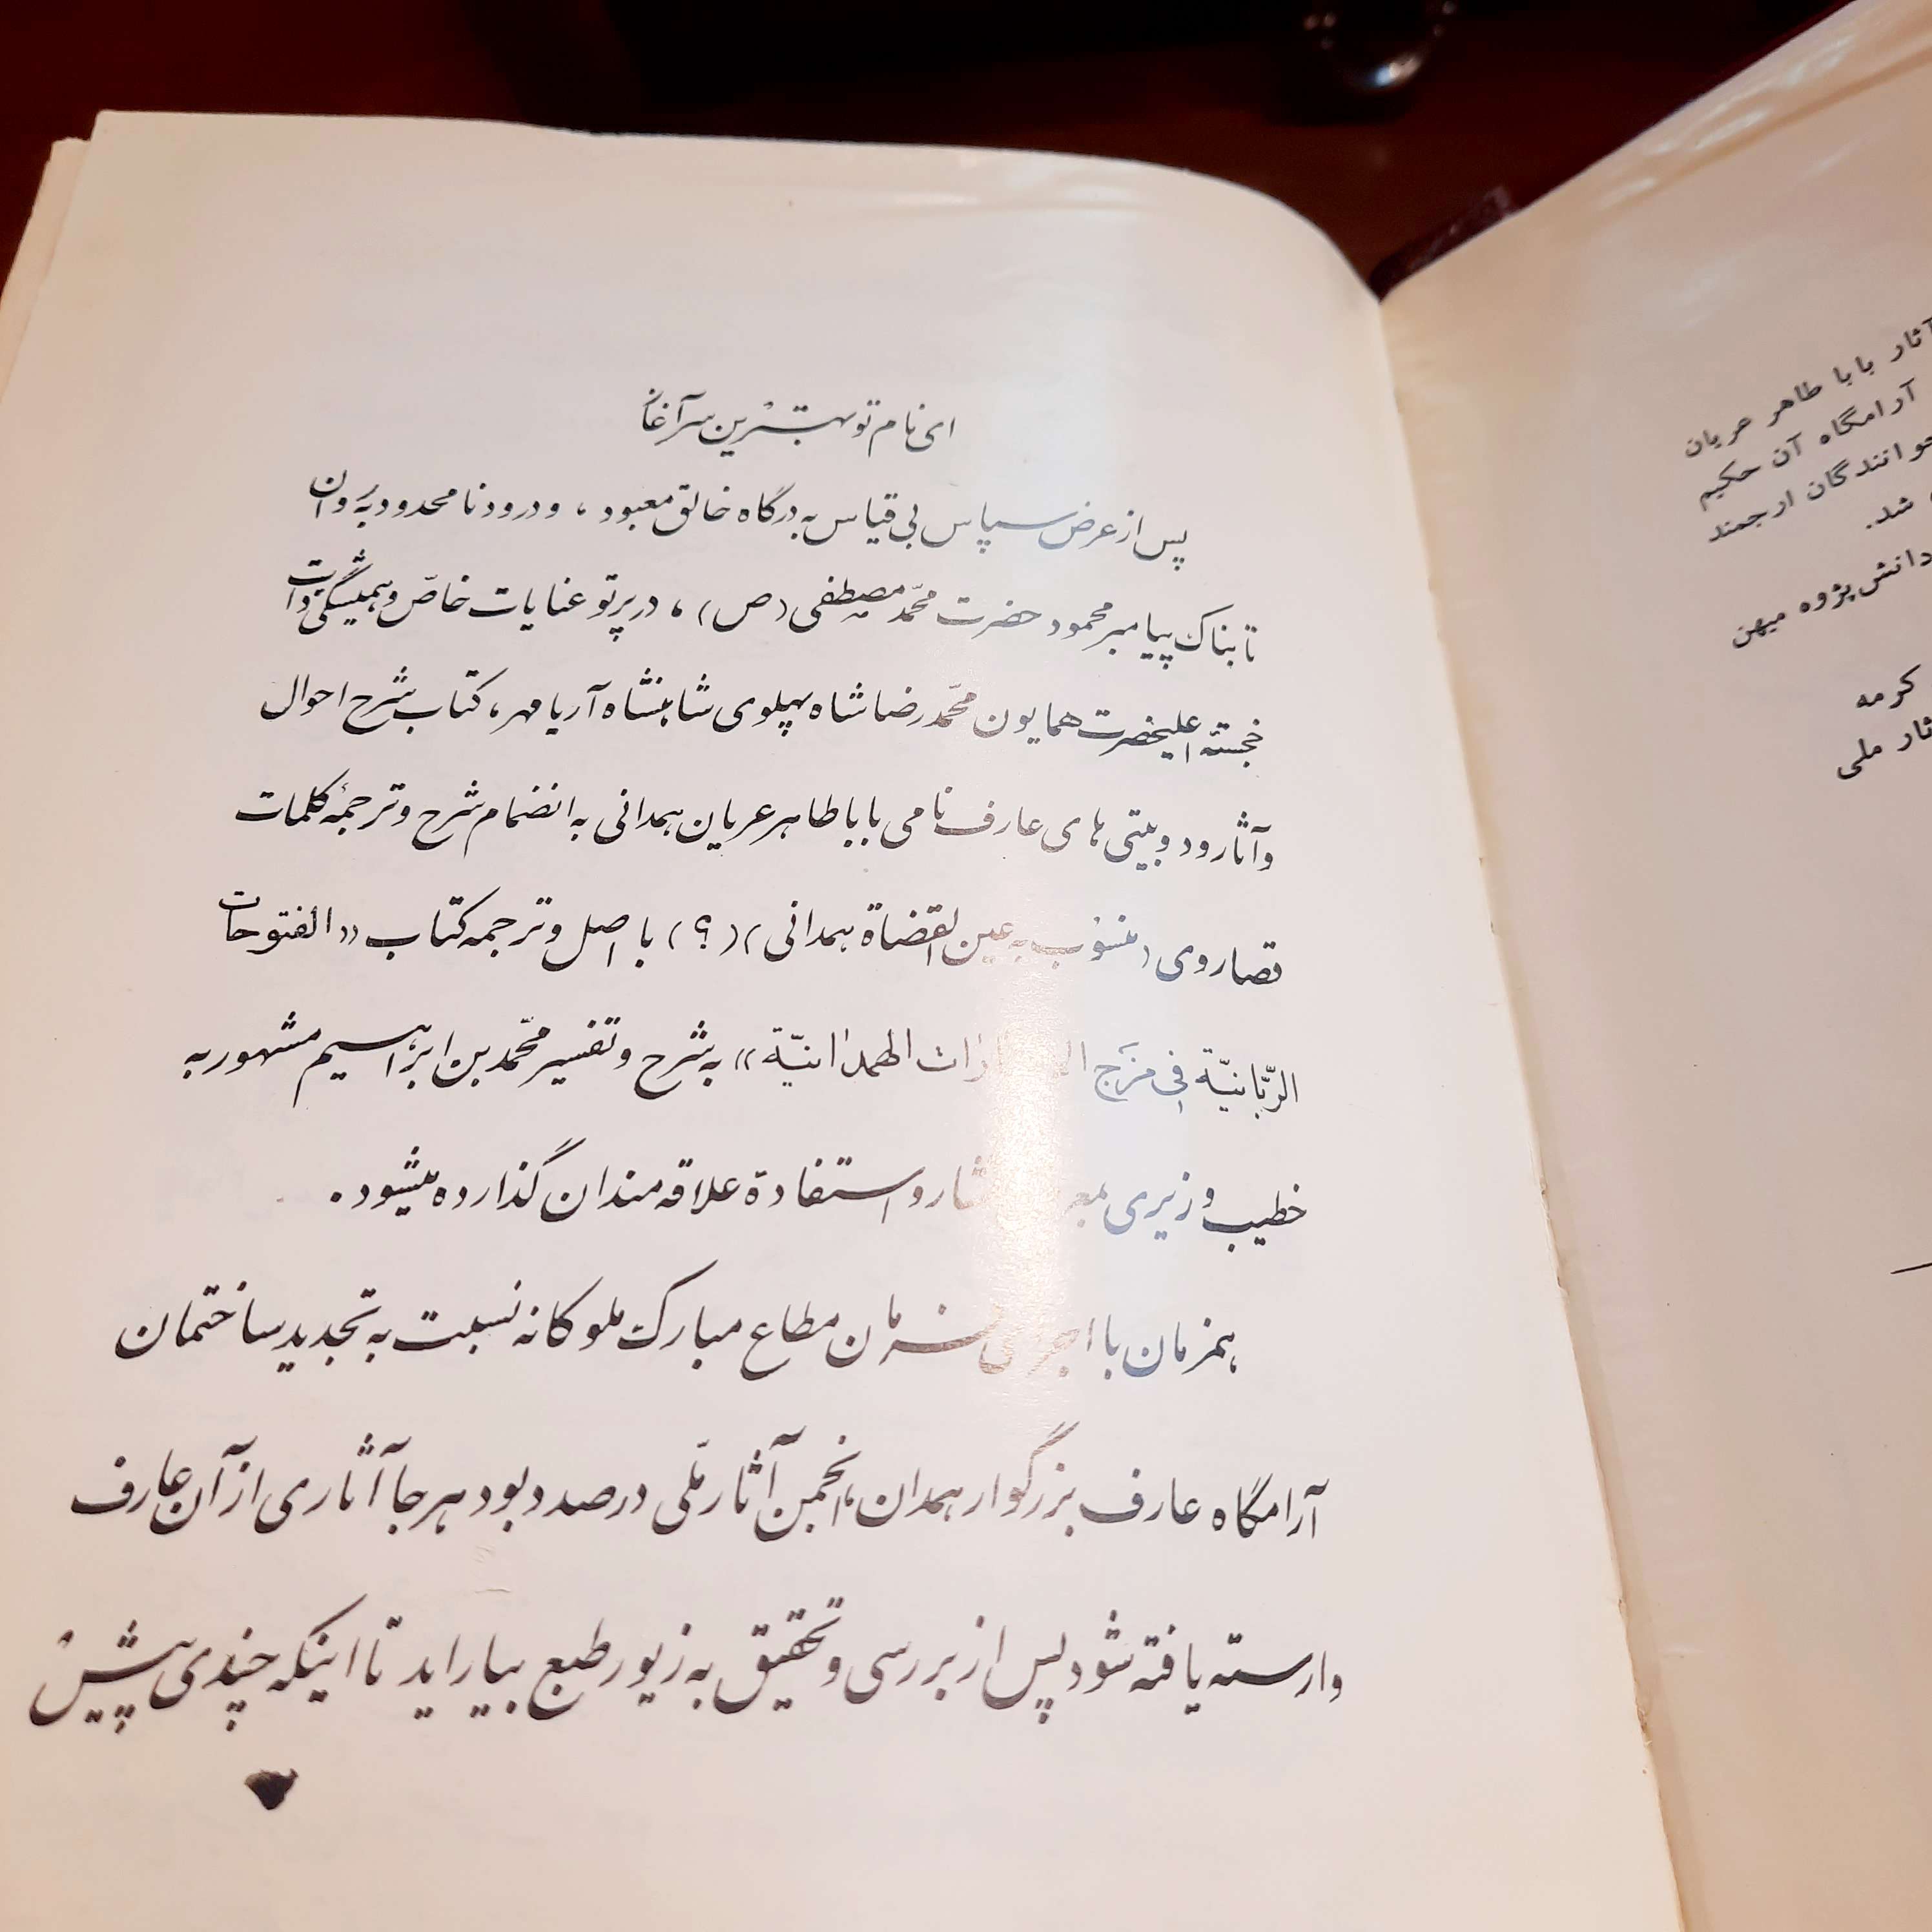 ای نام تو بهترین سرآغاز
پس از عرض سپاس بی قیاس به درگاه خالق معبود ، و درود نامحدود به روان
تابناک پیامبر محمود حضرت محمّد مصطفی (ص) ، در پرتو عنایات خاصّ و همیشگی ذات
خجسته اعلیحضرت همایون محمّدرضا شاه پهلوی شاهنشاه آریامهر ، کتاب شرح احوال
و آثار و دوبیتی های عارف نامی باباطاهر عریان همدانی به انضمام شرح و ترجمهٔ کلمات
قصار وی (منسوب به عین القضاة همدانی) (؟) با اصل و ترجمه کتاب «الفتوحات
الرّبّانیّة فی مزج الهمدانیّة» به شرح و تفسیر محمّد بن ابراهیم مشهور به
خطیب وزیری و استفادة علاقه مندان گذارده میشود .
همزمان با اجرای فرمان مطاع مبارک ملوکانه نسبت به تجدید ساختمان
آرامگاه عارف بزرگوار همدان ، انجمن آثار ملّی درصدد بود هرجا آثاری از آن عارف
وارسته یافته شود پس از بررسی و تحقیق به زیور طبع بیاراید تا اینکه چندی پیش
آثار بابا طاهر عریان
آرامگاه آن حکیم
خوانندگان ارجمند
شد.
دانش پژوه میهن
کرمه
آثار ملی